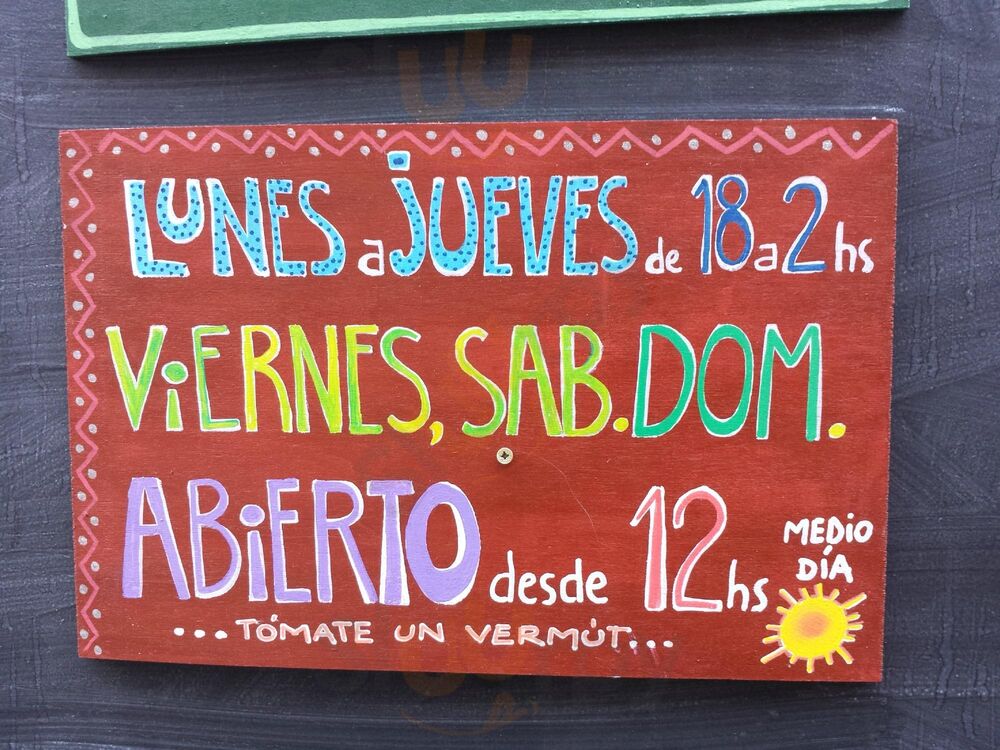 LUNES a JUEVES de 18 a 2 hs
ViERNES, SAB. DOM.
ABiERTO desde 12 hs
MEDIO
DÍA
...TÓMATE UN VERMÚT...